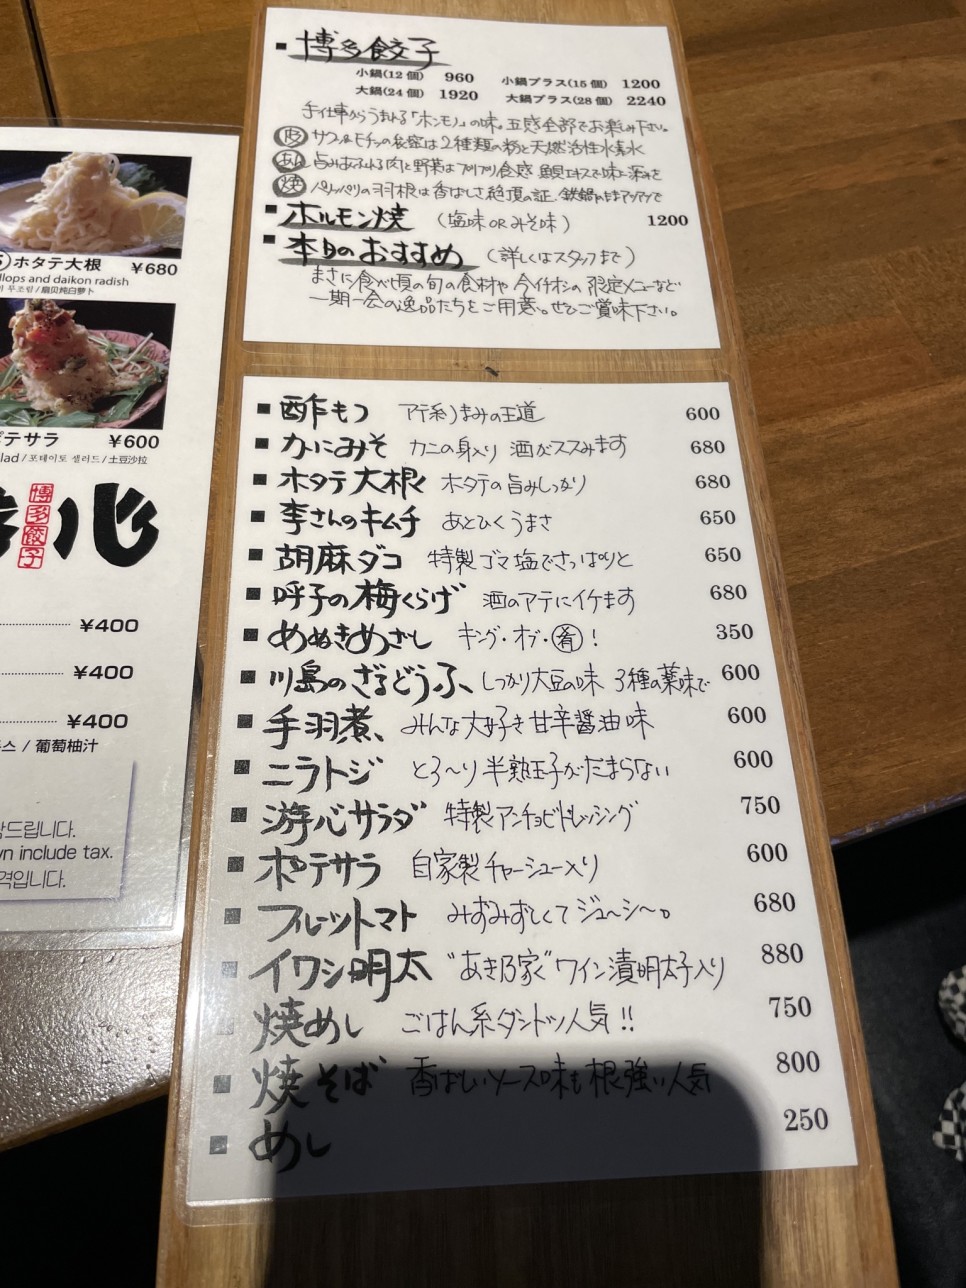 ホタテ大根 ¥680
llops and daikon radish
무조림/扇贝炖白萝卜
ポテサラ ¥600
lad/포테이토 샐러드/土豆沙拉
博多餃子
心
¥400
¥400
¥400
스 / 葡萄柚汁
드립니다.
wn include tax.
역입니다.
■博多餃子
小鍋(12個) 960 小鍋プラス(15個) 1200
大鍋(24個) 1920 大鍋プラス(28個) 2240
手仕事からうまれる「ホンモノ」の味。五感全部でお楽しみ下さい。
皮 サクッ&モチッの秘密は2種類の粉と天然活性水素水
あん 旨みあふれる肉と野菜はプリプリ食感
焼 パリッパリの羽根は香ばしさ絶頂の証。鉄鍋のままアツアツで
■ホルモン焼 (塩味ORみそ味) 1200
■本日のおすすめ (詳しくはスタッフまで)
まさに食べ頃の旬の食材や今イチオシの限定メニューなど
一期一会の逸品たちをご用意。ぜひご賞味下さい。
■酢もつ アテ系うまみの王道 600
■かにみそ カニの身入り 酒がススみます 680
■ホタテ大根 ホタテの旨みしっかり 680
■李さんのキムチ あとひくうまさ 650
■胡麻ダコ 特製ゴマ塩でさっぱりと 650
■呼子の梅くらげ 酒のアテにイケます 680
■めぬきめざし キング・オブ・肴! 350
■川島のざるどうふ、しっかり大豆の味 3種の薬味で 600
■手羽煮、みんな大好き甘辛醤油味 600
■ニラトジ とろ〜り半熟玉子がたまらない 600
■游心サラダ 特製アンチョビドレッシング 750
■ポテサラ 自家製チャーシュー入り 600
■フルーツトマト みずみずしくてジュ〜シ〜。 680
■イワシ明太 "あき乃家"ワイン漬明太子入り 880
■焼めし ごはん系ダントツ人気!! 750
■焼そば 香ばしいソース味も根強い人気 800
■めし 250